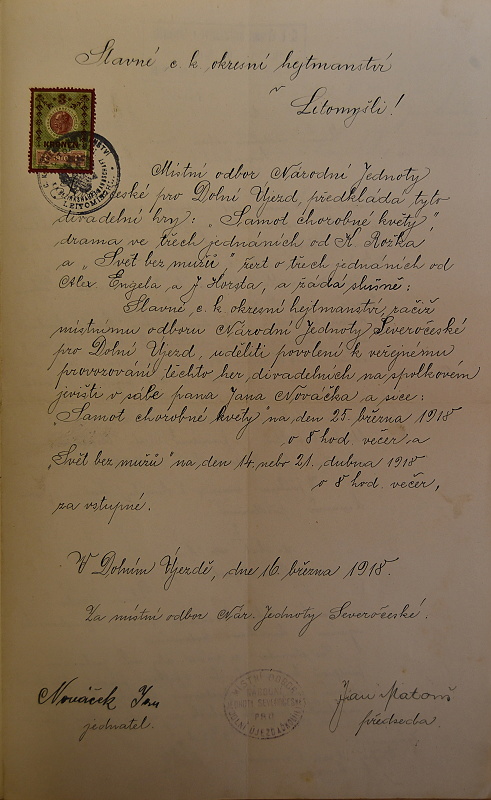 Slavné c. k. okresní hejtmanství
v
Litomyšli!
Místní odbor Národní Jednoty
české pro Dolní Újezd, předkládá tyto
divadelní hry: „Samot chorobné květy“,
drama ve třech jednáních od K. Rožka
a „Svět bez mužů“, žert o třech jednáních od
Alex. Engela a J. Horsta, a žádá slušně:
Slavné, c. k. okresní hejtmanství, račiž
místnímu odboru Národní Jednoty Severočeské
pro Dolní Újezd, uděliti povolení k veřejnému
provozování těchto her, divadelních na spolkovém
jevišti v sále pana Jana Nováčka a sice:
„Samot chorobné květy“ na den 25. března 1918
o 8 hod. večer a
„Svět bez mužů“ na den 14. nebo 21. dubna 1918
o 8 hod. večer,
za vstupné.
V Dolním Újezdě, dne 16. března 1918.
Za místní odbor Nár. Jednoty Severočeské.
Nováček Jan
jednatel.
MÍSTNÍ ODBOR
NÁRODNÍ
PRO
DOLNÍ ÚJEZD
Jan Matouš
předseda.